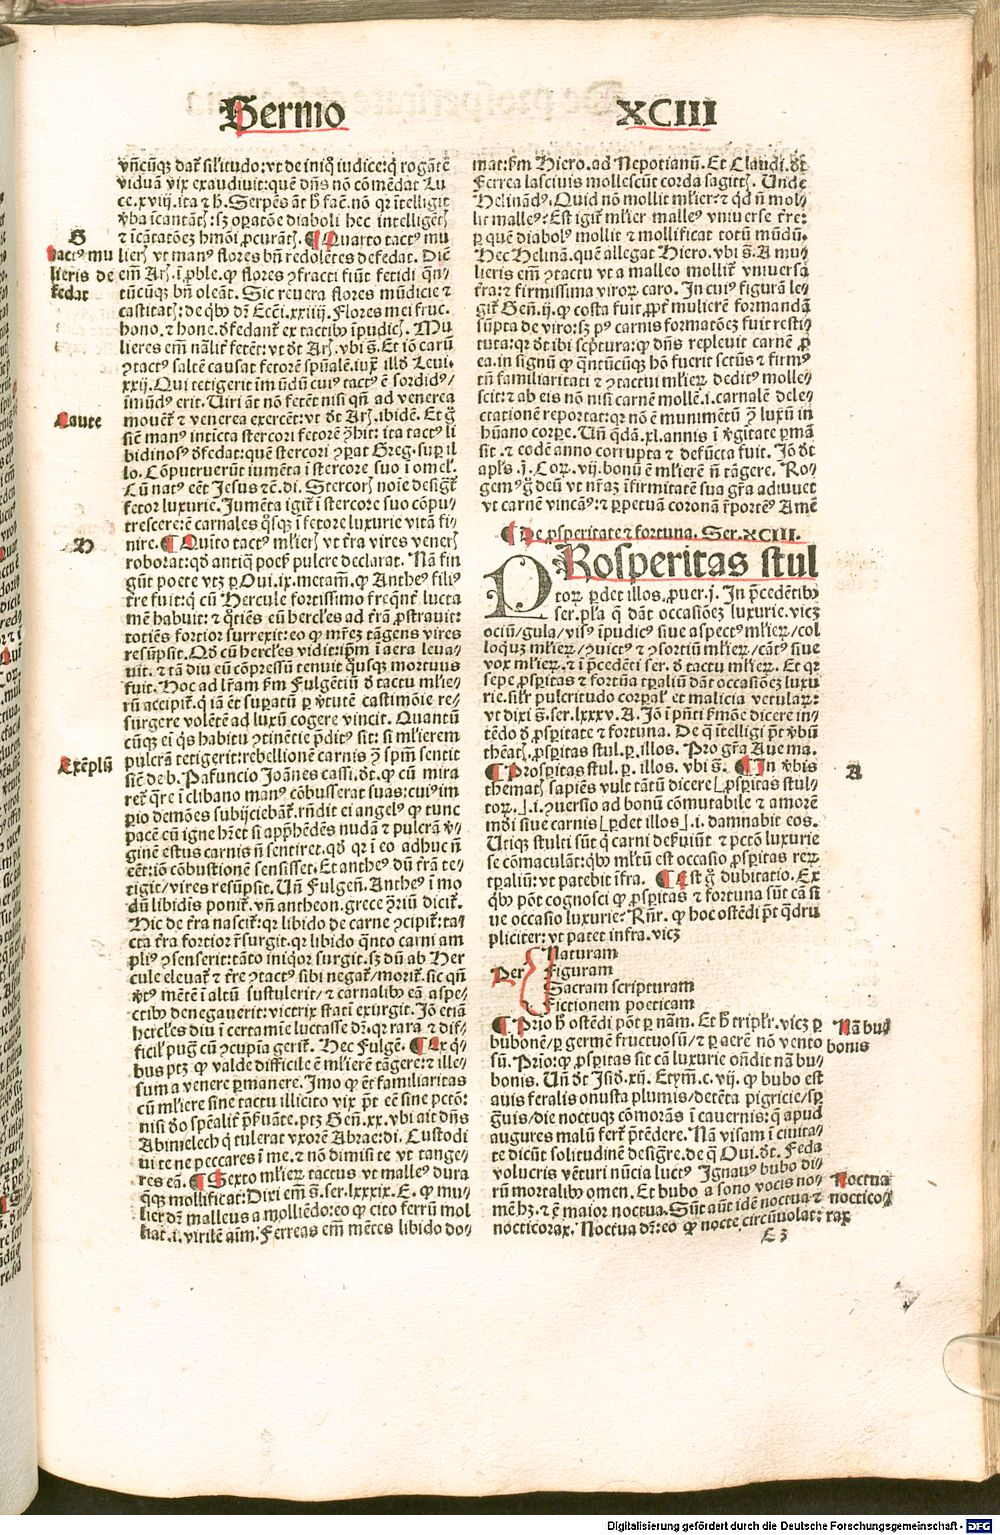 Sermo XCIII
vncūqȝ dat̄ silitudo: vt de iniq̄ iudice: q̄ rogātē
viduā vix exaudiuit: quē dn̄s nō cōmēdat Lu
ce.xviij. ita ⁊ h̄. Serpēs āt h̄ fac̄. nō qꝛ ītelligit
G
Tactꝰ mu
lieris de
fedat
lieꝝ vt manꝰ flores bn̄ redolētes defedat. Dic̄
tūcūqȝ bn̄ oleāt. Sic reuera flores mūdicie ⁊
castitat : de qbꝰ dꝛ Ecc̄i.xxiiij. Flores mei fruc.
xxij. Qui tetigerit īmūdū cuiꝰ tactꝰ ē sordidꝰ/
īmūdꝰ erit. Uiri āt nō fetēt nisi qn̄ ad venerea
Caute
mouēt ⁊ venerea exercēt: vt dt Ar. ibidē. Et g̊
siē manꝰ intincta stercori fetorē ꝯhit: ita tactꝰ li
bidinosꝰ defedat: quē stercori ꝯpat Greg. sup il
lo. Cōputruerūt iumēta ī stercore suo ī omel.
fetor luxurie. Jumēta igit̄ ī stercore suo cōpu
trescere: ē carnales qsqȝ ī fetore luxurie vitā fi
H
nire. ¶ Quīto tactꝰ mlieꝝ vt t̄ra vires veneꝝ
roborat: qd antiq̄ poete pulcre declarāt. Nā fin
gūt poete vtꝫ p Oui.ix.metam. ꝙ Antheꝰ filiꝰ
tre fuit: q̄ cū Hercule fortissimo freqn̄t̄ lucta
mē habuit: ⁊ qtiēs cū hercules ad t̄rā ꝓstrauit:
totiēs fortior surrexit: eo ꝙ mrēꝫ tāgens vires
resūpsit. Qd cū hercules vidit: ip̄m ī aera leua
uit. ⁊ tā diu eū cōpressū tenuit qusqȝ mortuus
surgere volētē ad luxū cogere vincit. Quantū
cūqȝ ei qs habitu ꝯtinētie pditꝰ sit: si mlierem
pulcrā tetigerit: rebellionē carnis ꝯ spm̄ sentit
Exēplū
sic de b. Pafuncio Joānes cassi. dt. ꝙ cū mira
ret̄ qre ī clibano manꝰ cōbusserat suas: cui im
pio demōes subijciebāt. rn̄dit ei angelꝰ ꝙ tunc
pacē cū igne hr̄et si app̄hēdēs nudā ⁊ pulcrā v̄
ginē estus carnis nō sentiret. qd qꝛ ī eo adhuc n̄
eēt: iō cōbustionē sensisset. Et antheꝰ dū t̄rā te
tigit/ vires resūpsit. Un̄ Fulgen̄. Antheꝰ ī mo
dū libidis ponit̄. vn̄ antheon. grece ꝯriū dicit̄.
Hic de t̄ra nascit̄: qꝛ libido de carne ꝯcipit̄: ta
cta t̄ra fortior r̄surgit. qꝛ libido qn̄to carni am
pliꝰ ꝯsenserit: tāto iniqor surgit. sꝫ dū ab Her
cule eleuat̄ ⁊ t̄re ꝯtactꝰ sibi negat̄/ morit̄. sic qn̄
ctibꝰ denegauerit: victrix stati exurgit. Jō etiā
hercules diu ī certamīe luctasse dꝛ. qꝛ rara ⁊ dif
ficil̄ pugͣ cū ꝯcupīa gerit̄. Hec Fulgē. ¶ Ex q̄
bus ptꝫ ꝙ valde difficile ē mlierē tāgere: ⁊ ille
sum a venere ꝑmanere. Imo ꝙ ēt familiaritas
cū mliere sine tactu illicito vix pt eē sine pctō:
Abimelech q̄ tulerat vxorē Abrae: di. Custodi
ui te ne peccares ī me. ⁊ nō dimisi te vt tange
res eā. ¶ Sexto mlieꝝ tactus vt malleꝰ dura
qeqȝ mollificat: Dixi em̄ s. ser.lxxxix. E. ꝙ mu
lier dꝛ malleus a molliēdo: eo ꝙ cito ferrū mol
liat .i. virilē aīm. Ferreas em̄ mētes libido do
mat: km Hiero. ad Nepotianū. Et Claudi. dt
Ferrea lasciuis mollescūt corda sagittꝭ. Unde
Helinādꝰ. Quid nō mollit mlier: ⁊ qd n̄ mol
lit malleꝰ? Est igit̄ mlier malleꝰ vniuerse tre:
p quē diabolꝰ mollit ⁊ mollificat totū mūdū.
Hec Helinā. quē allegat Hiero. vbi s. A mu
lieris em̄ ꝯtactu vt a malleo mollit̄ vniuersa
t̄ra: ⁊ firmissima viroꝝ caro. In cuiꝰ figurā le
git̄ Gen.ij. ꝙ costa fuit ꝓpt̄ mulierē formandā
sūpta de viro: sꝫ pꝰ carnis formatōeꝫ fuit resti
tuta: qꝛ dt ibi sc̄ptura: ꝙ dn̄s repleuit carnē ꝓ
ea. in signū ꝙ qn̄tūcūqȝ hō fuerit sctūs ⁊ firmꝰ
tn̄ familiaritati ⁊ ꝯtactui mlieꝝ deditꝰ molle
scit: ⁊ ab eis nō nisi carnē mollē .i. carnalē dele
ctationē reportat: qꝛ nō ē munimētū ꝯ luxū in
hūano corpe. Un̄ qdā .xl. annis ī v̄gitate ꝑmā
sit. ⁊ eodē anno corrupta ⁊ defūcta fuit. Jō dt
apls .j. Cor. vij. bonū ē mlierē n̄ tāgere. Ro
gemꝰ g̊ deū vt nr̄aꝫ īfirmitatē sua gr̄a adiuuet
vt carnē vincamꝰ: ⁊ ꝑpetuā coronā r̄portēꝰ Amē
¶ De ꝓsperitate ⁊ fortuna. Ser.XCIII.
PRosperitas stul
toꝝ ꝑdet illos. ꝓuer.j. In p̄cedētibꝰ
ser. pla q̄ dāt occasiōeꝫ luxurie. vicꝫ
ociū/ gula/ visꝰ īpudicꝰ siue aspectꝰ mlieꝝ/ col
loquꝫ mlieꝝ/ ꝯuictꝰ ⁊ ꝯsortiū mlieꝝ/ cātꝰ siue
vox mlieꝝ. ⁊ ī p̄cedēti ser. d̄ tactu mlieꝝ. Et qꝛ
sepe ꝓsp̄itas ⁊ fortūa tꝑaliū dāt occasiōeꝫ luxu
rie. silr pulcritudo corpal̄ et malicia vetulaꝝ:
vt dixi s. ser.lxxxv. A. Jō ī pn̄ti kmōe dicere in
tēdo d̄ ꝓsp̄itate ⁊ fortuna. De q̄ ītelligi pt v̄bū
theāt. ꝓsp̄itas stul. ꝑ. illos. Pro gr̄a Aue ma.
¶ Prosp̄itas stul. ꝑ. illos. vbi s. ¶ In v̄bis
A
thematꝭ sapiēs vult tātū dicere [ꝓsp̄itas stul
toꝝ.].i. ꝯuersio ad bonū cōmutabile ⁊ amorē
mūdi siue carnis [ꝑdet illos].i. damnabit eos.
Utiqȝ stulti sūt q̄ carni deꝰuiūt ⁊ pctō luxurie
se cōmaculāt: qbꝰ mltū est occasio ꝓsp̄itas reꝝ
tꝑaliū: vt patebit īfra. ¶ Est g̊ dubitatio. Ex
qbꝰ pōt cognosci ꝙ ꝓsp̄itas ⁊ fortuna sūt cā si
ue occasio luxurie? Rn̄r. ꝙ hoc ostēdi pt qdru
pliciter: vt patet infra. vicꝫ
Per
Naturam
Figuram
Sacram scripturam
Fictionem poeticam
¶ Prio h̄ ostēdi pōt ꝑ nām. Et h̄ triplr. vicꝫ ꝑ
Nā bu
bonis
bubonē/ ꝑ germē fructuosū/ ⁊ ꝑ aerē nō vento
sū. Prio: ꝙ ꝓsp̄itas sit cā luxurie on̄dit nā bu
bonis. Un̄ dt Jsid.xij. Etym.c.vij. ꝙ bubo est
auis feralis onusta plumis/ detēta pigricie/ sꝑ
g̊uis/ die noctuqȝ cōmorās ī cauernis: q̄ apud
augures malū fert̄ p̄tēdere. Nā visam ī ciuita
te dicūt solitudinē desigre. de q̄ Oui. dt. Feda
volucris vēturi nūcia luctꝰ Ignauꝰ bubo di
rū mortalibꝰ omen. Et bubo a sono vocis no
Noctua
nocticо
rax
mē hꝫ. ⁊ ē maior noctua. Sūt aut̄ idē noctua ⁊
nocticorax. Noctua dꝛ: eo ꝙ nocte circūuolat:
E 3
Digitalisierung gefördert durch die Deutsche Forschungsgemeinschaft - DFG